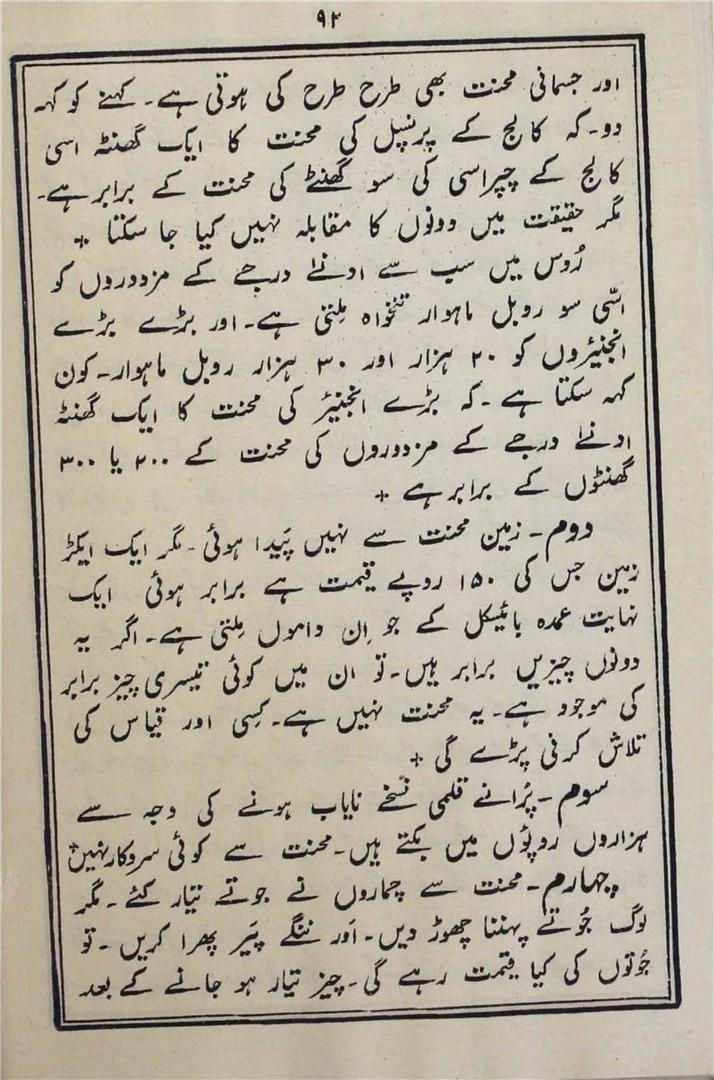 ۹۲
اور جسمانی محنت بھی طرح طرح کی ہوتی ہے۔ کہنے کو کہہ
دو۔ کہ کالج کے پرنسپل کی محنت کا ایک گھنٹہ اسی
کالج کے چپراسی کی سو گھنٹے کی محنت کے برابر ہے۔
مگر حقیقت میں دونوں کا مقابلہ نہیں کیا جا سکتا *
رُوس میں سب سے ادنےٰ درجے کے مزدوروں کو
اسّی سو روبل ماہوار تنخواہ مِلتی ہے۔ اور بڑے بڑے
انجنیئروں کو ۲۰ ہزار اور ۳۰ ہزار روبل ماہوار۔ کون
کہہ سکتا ہے۔ کہ بڑے انجنیئر کی محنت کا ایک گھنٹہ
ادنےٰ درجے کے مزدوروں کی محنت کے ۲۰۰ یا ۳۰۰
گھنٹوں کے برابر ہے *
دوم۔ زمین محنت سے نہیں پَیدا ہوئی۔ مگر ایک ایکڑ
زمین جس کی ۱۵۰ روپے قیمت ہے برابر ہوئی ایک
نہایت عمدہ بائیسکل کے جو اِن داموں مِلتی ہے۔ اگر یہ
دونوں چیزیں برابر ہیں۔ تو ان میں کوئی تیسری چیز برابر
کی موجود ہے۔ یہ محنت نہیں ہے۔ کِسی اور قیاس کی
تلاش کرنی پڑے گی *
سوم۔ پُرانے قلمی نُسخے نایاب ہونے کی وجہ سے
ہزاروں روپوُں میں بکتے ہیں۔ محنت سے کوئی سروکار نہیں *
چہارم۔ محنت سے چماروں نے جوتے تیار کئے۔ مگر
لوگ جُوتے پہننا چھوڑ دیں۔ اَور ننگے پَیر پھرا کریں۔ تو
جُوتوں کی کیا قیمت رہے گی۔ چیز تیار ہو جانے کے بعد